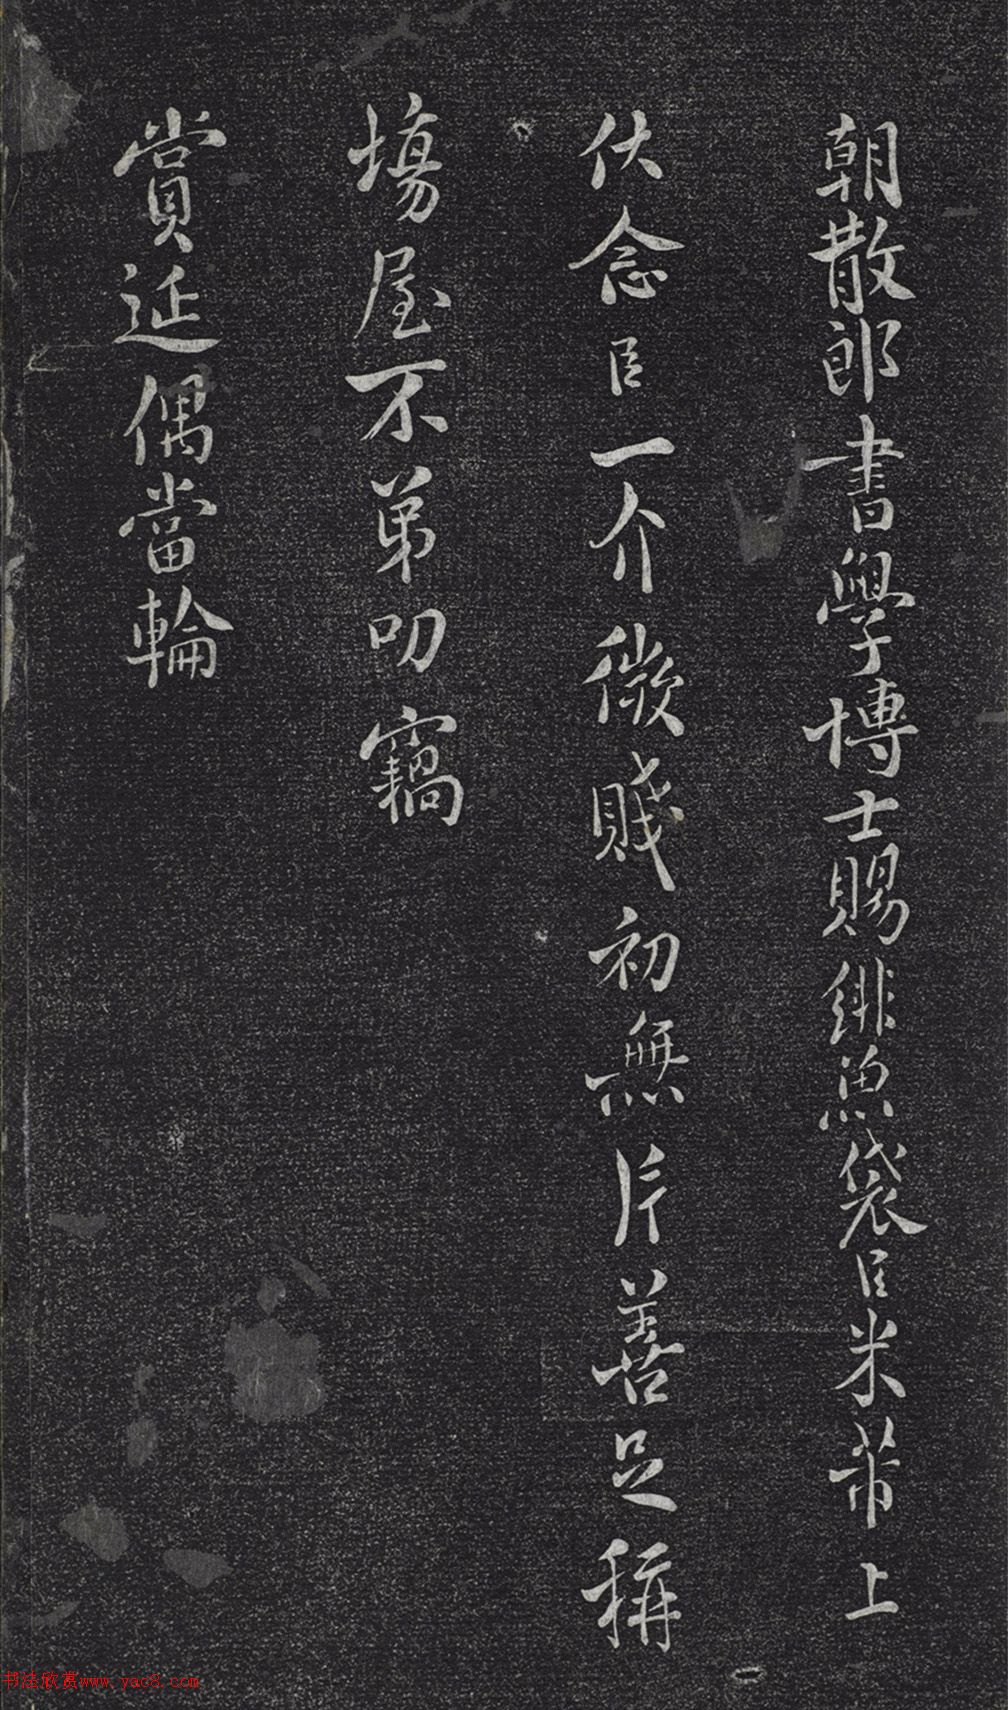 朝散郎書學博士賜緋魚袋臣米芾上
伏念臣一介微賤初無片善足稱
場屋不弟叨竊
賞延偶當輪
书法欣赏www.yac8.com